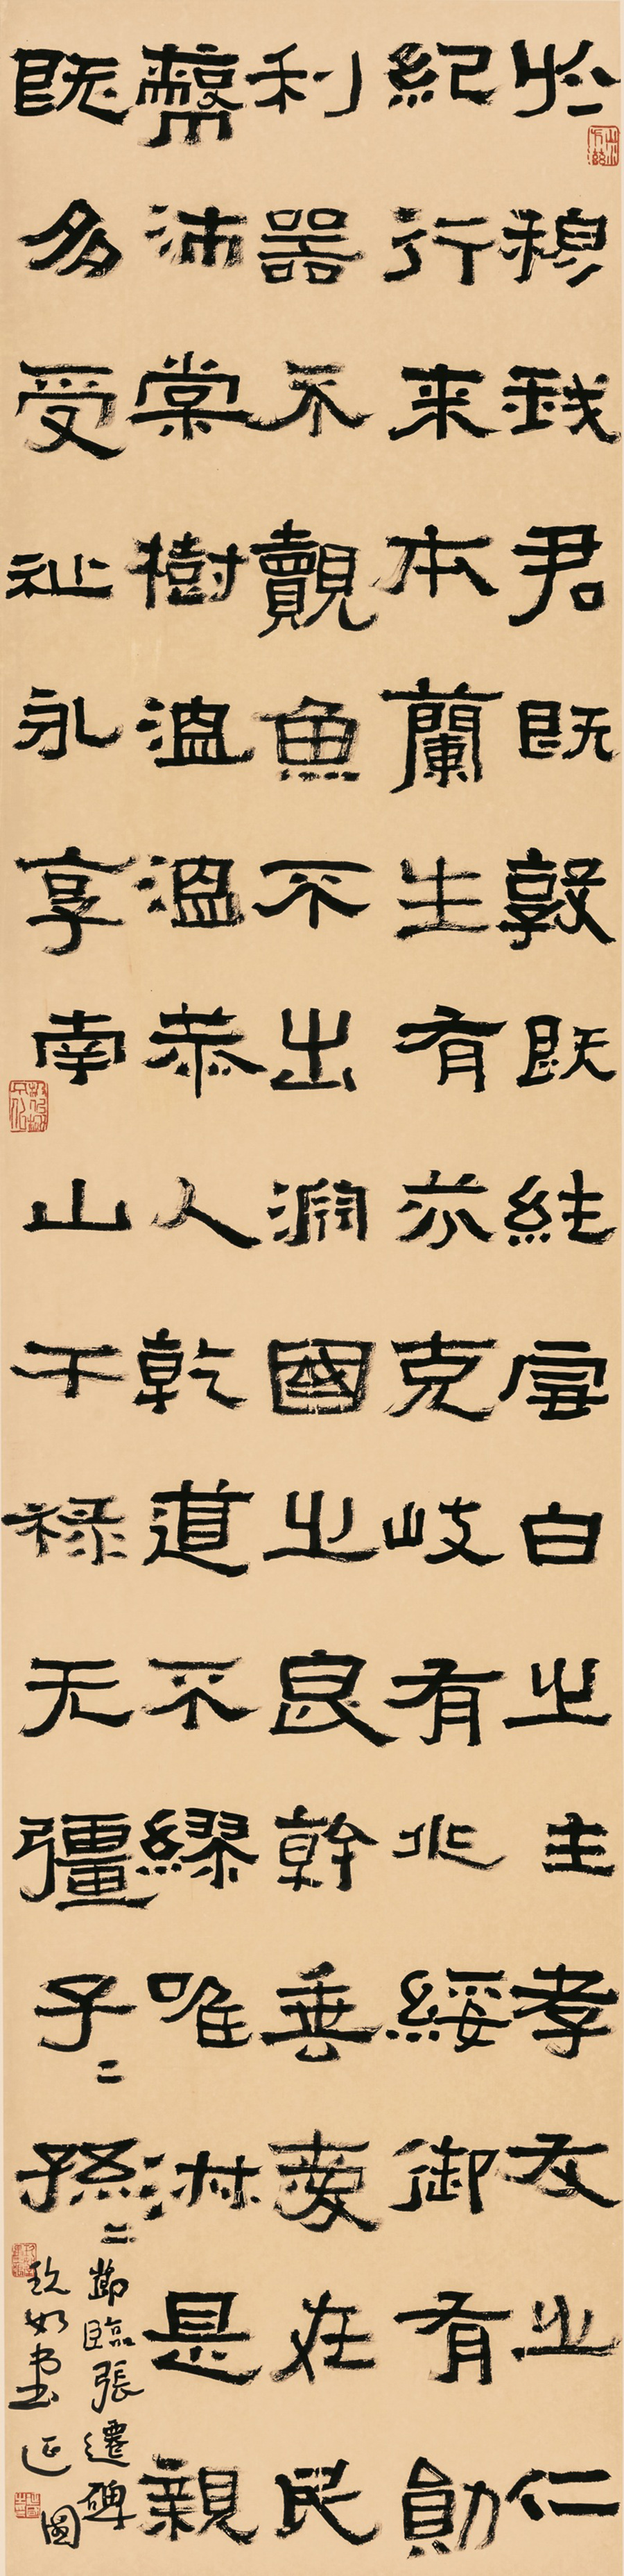 於穆我君既敦既純雪白之主孝友之仁
紀行来本蘭生有芬克岐有兆綏御有勛
利器不覿魚不出淵國之良幹垂愛在民
蔽沛棠樹温温恭人乾道不繆唯淑是親
既多受祉永享南山干禄无彊子〻孫〻
節臨張遷碑